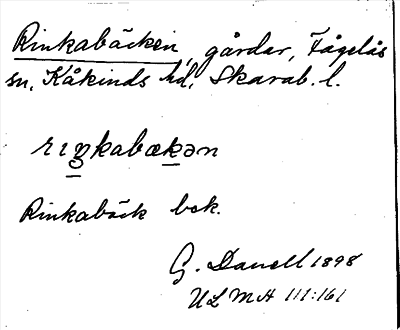 Rinkabäcken, gårdar, Fågelås
sn, Kåkinds hd, Skarab. l.
rıŋkabækən
Rinkabäck bok.
G. Danell 1898
ULMA 111:161